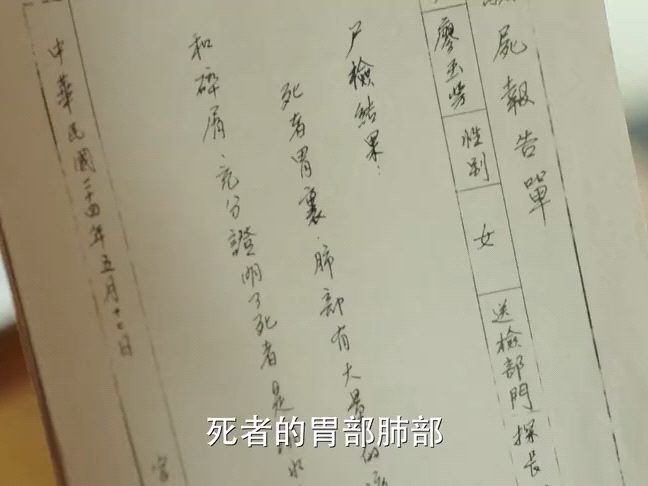 屍報告單
廖玉芳 性别 女 送檢部門 探長
尸檢結果:
死者胃裏、肺部有大量的
和碎屑、充分證明了死者是
中華民國二十四年五月十七日
死者的胃部肺部